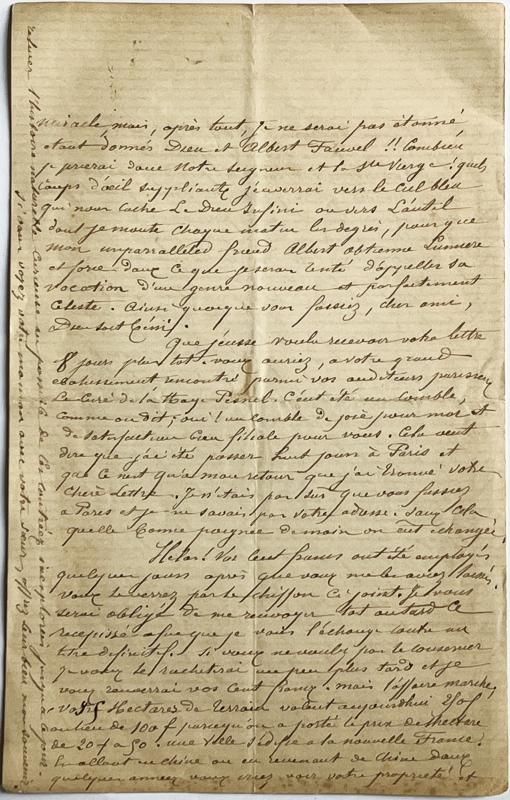 miracle mais, après tout, je ne serai pas étonné
étant donnés Dieu et Albert Fauvel !! Combien
je prierai donc Notre Seigneur et la Ste Vierge ! quels
coups d'œil suppliants j'enverrai vers le Ciel bleu
qui nous cache le Dieu Infini ou vers l'autel
dont je monte chaque matin les degrés, pour que
mon unparralleled friend Albert obtienne lumière
et force dans ce que je serais tenté d'appeler sa
vocation d'un genre nouveau et parfaitement
céleste. Ainsi quoique vous fassiez, cher ami,
Dieu soit béni !
Que j'eusse voulu recevoir votre lettre
8 jours plus tôt. vous auriez, à votre grand
ébahissement rencontré parmi vos auditeurs parisiens
Le Curé de la Haye Pesnel. C'eut été un comble,
comme on dit ; oui ! un comble de joie pour moi et
de satisfaction bien filiale pour vous. Cela veut
dire que j'ai été passer huit jours à Paris et
que ce n'est qu'à mon retour que j'ai trouvé votre
chère lettre. Je n'étais pas sûr que vous fussiez
à Paris et je ne savais pas votre adresse. Sans cela
quelle bonne poignée de main on eut échangée
Hélas ! Vos cent francs ont été employés
quelques jours après que vous me les aviez laissés.
Vous le verrez par le chiffon ci joint. Je vous
serai obligé de me renvoyer tôt ou tard ce
récépissé afin que je vous l'échange contre un
titre définitif. Si vous ne voulez pas le conserver
je vous le rachèterai un peu plus tard et je
vous renverrai vos cent francs. mais l'affaire marche,
vos 5 Hectares de terrain valent aujourd'hui 250f
au lieu de 100f parcequ'on a porté le prix de l'hectare
de 20f à 50. une ville s'édifie à la nouvelle France.
En allant en Chine ou en revenant de Chine dans
quelques années vous irez voir votre propriété ! et
l'histoire naturelle curieuse au possible de ces contrées inexplorées jusqu'à ce jour.
Si vous voyez votre maman avec votre sœur, offrez leur bien mon souvenir